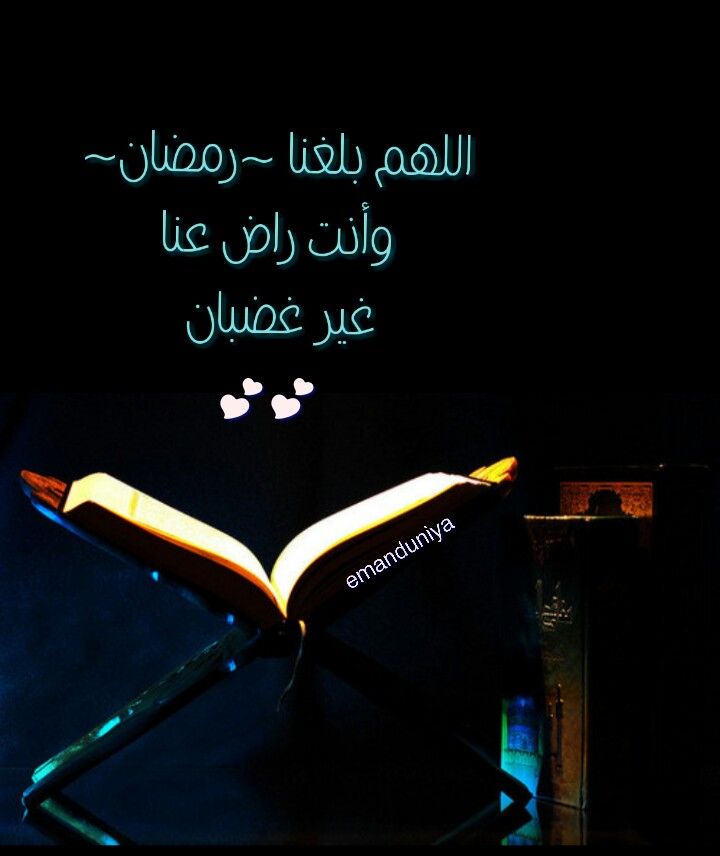 اللهم بلغنا ~رمضان~
وأنت راض عنا
غير غضبان
💕💕
emanduniya